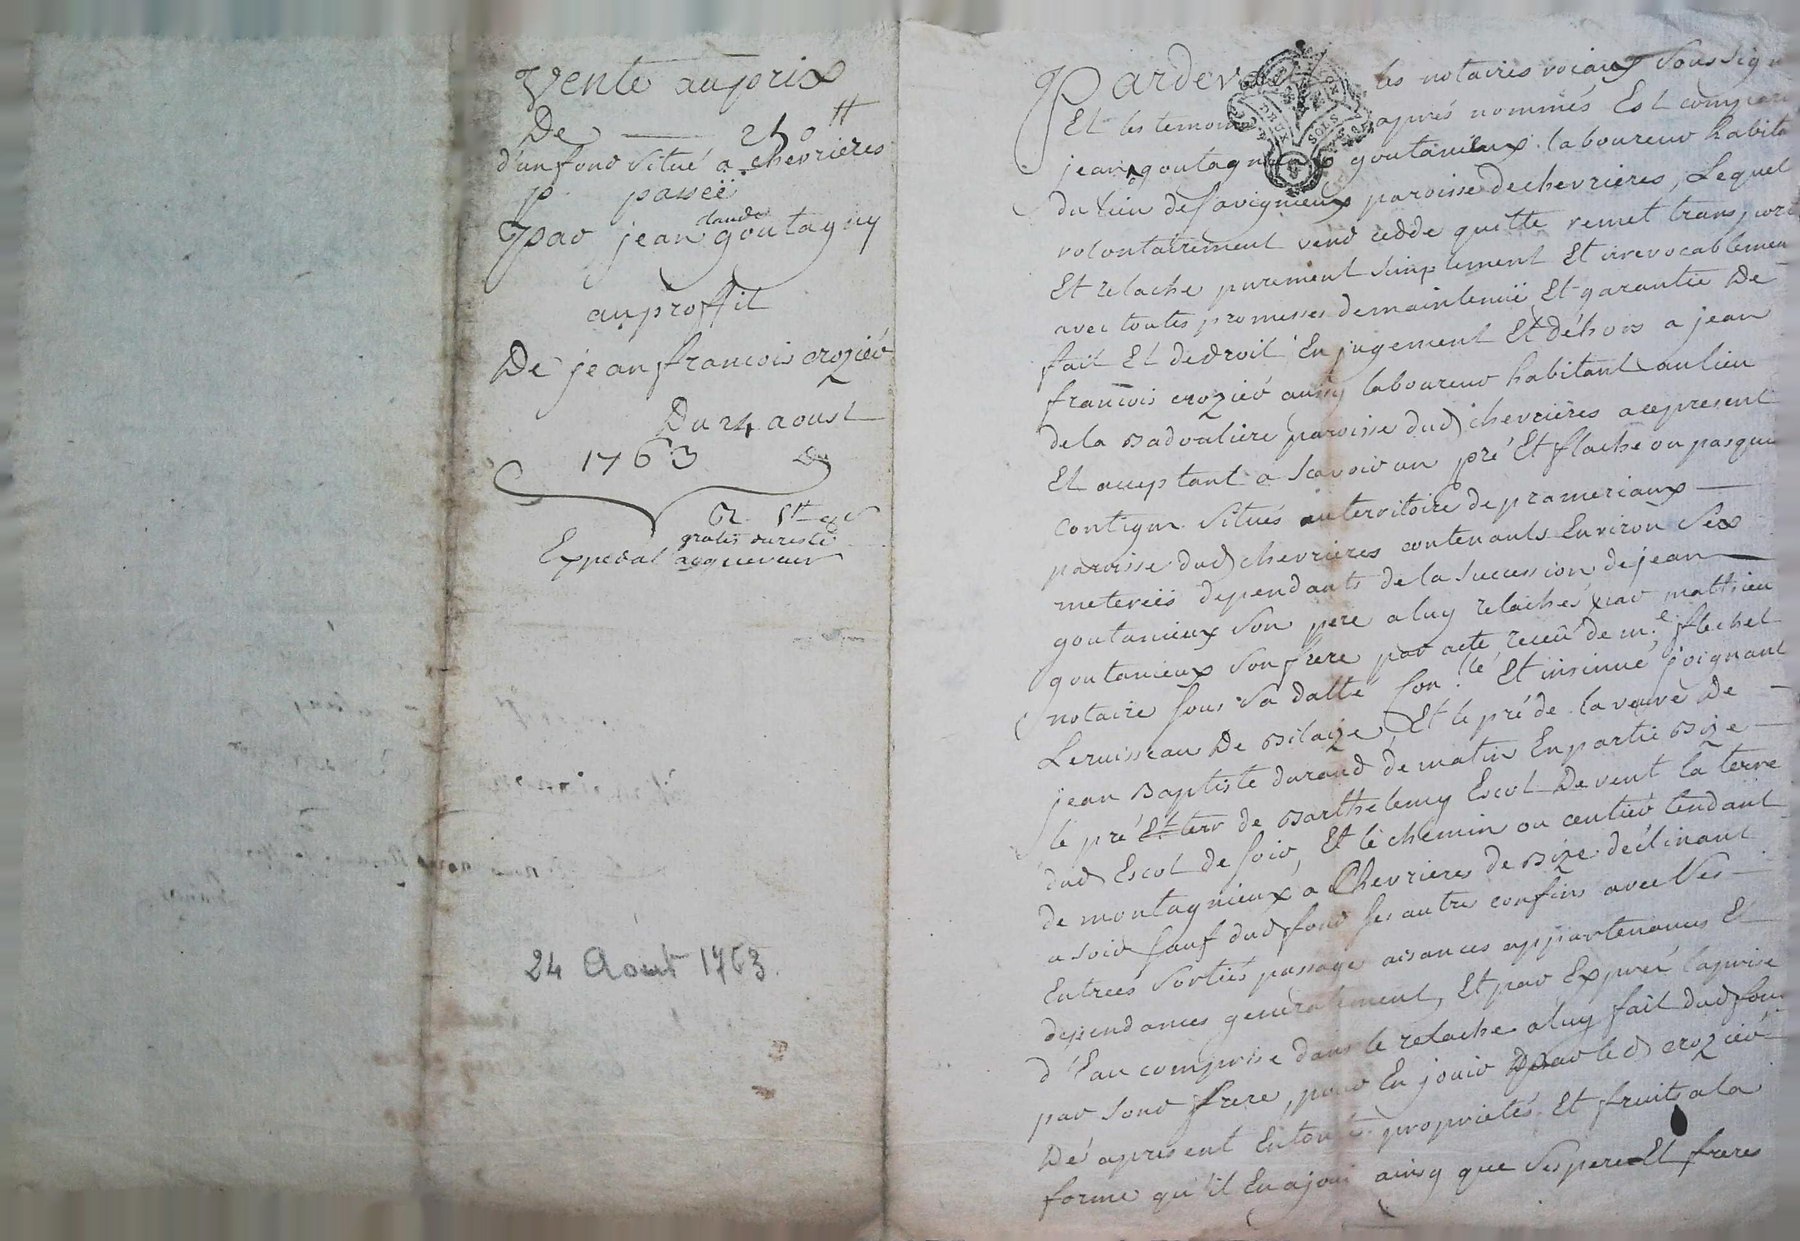 Vente au prix
De —— 210 ₶
d'un fond Situé a chevrieres
p. passeë
claude
Par jean goutagny
au proffit
De jean francois crozier
Du 24 aoust
1763
gratis du reste
Expedal acquereur
24 Août 1763.
Pardev les notaires roiaux Soussign
Et les temoins après nommés Est compar
jean goutagn goutanieux laboureur habita
du lieu de Savignieux paroisse de chevrieres, Lequel
volontairement vend cedde quitte remet transporte
Et relache purement simplement Et irrevocablemen
avec toutes promesses de maintenuë Et garantie De
fait Et de droit En jugement Et déhors a jean
francois crozier aussy laboureur habitant au lieu
de la Badouliere paroisse dud chevrieres acepresent
Et acceptant a Scavoir un pré Et flache ou pasqu
contigu Situés au territoire de prameriaux —
paroisse dud chevrieres contenants Environ Six
meterëes dependants de la succession de jean —
goutanieux Son pere a luy relachés par mathieu
goutanieux Son frere par acte receü de m.e flechet
notaire sous Sa datte Con.lé Et insinué joignant
Le ruisseau De Bilaize, Et le pré de la veuve De —
jean Baptiste durand de matin En partie Bize —
le pré Et terr de Barthelemy Escot De vent la terre
dud Escot de soir, Et le chemin ou centier tendant
de montagnieux a Chevrieres de Bize déclinant
a soir sauf dud fond ses autres confins avec Ses —
Entrees Sorties passages aisances appartenances Et
dependances generalement, Et par Exprès la prise
d'Eau comprise dans le relache a luy fait dud fon
par sond frere, pour En jouir par led crozier
Dé apresent En toutes proprietés Et fruits a la
forme qu'il En a joui ainsy que Ses pere Et freres